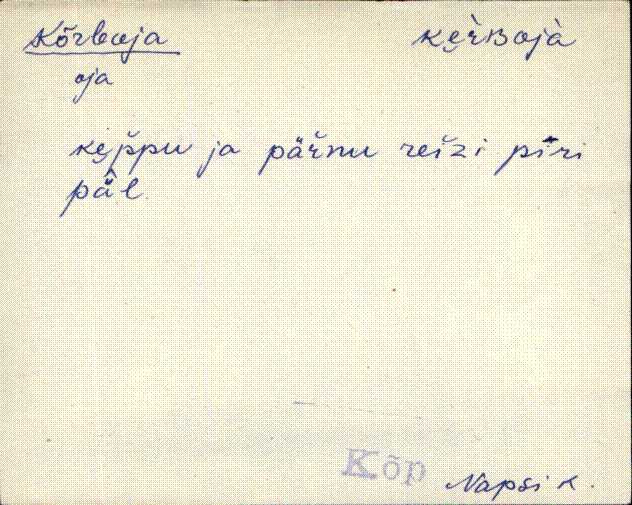 Kõrboja ke̮rʙojà
oja
ke̮p̆pu ja pär̆nu rei̮zi pīri
pǟl
Kõp Napsi k.